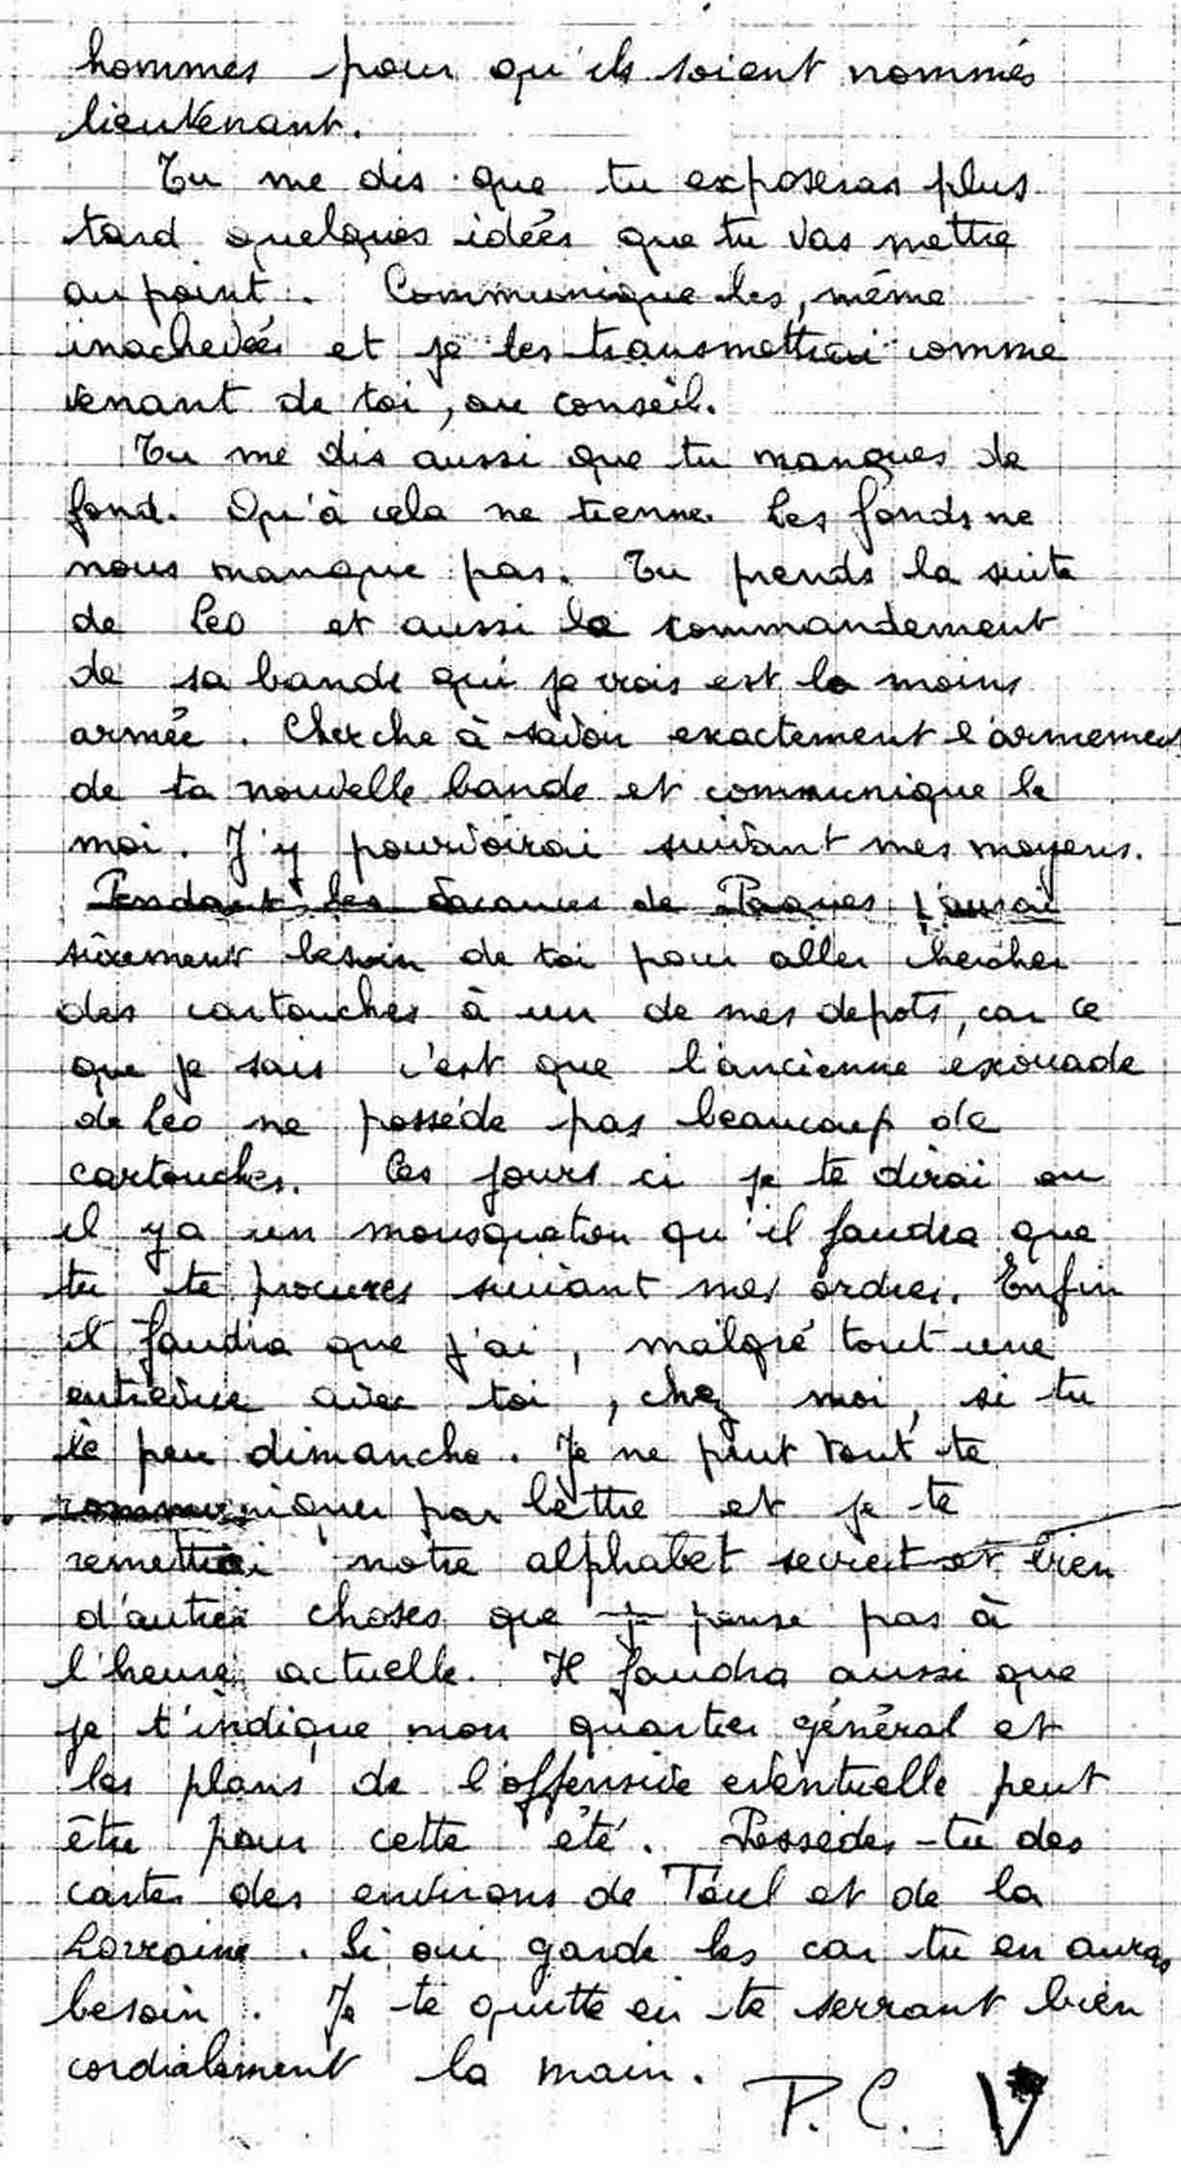 hommes pour qu'ils soient nommés
lieutenant.
Tu me dis que tu exposeras plus
tard quelques idées que tu vas mettre
au point. Communique les, même
inachevées et je les transmettrai comme
venant de toi, au conseil.
Tu me dis aussi que tu manques de
fond. Qu'à cela ne tienne. Les fonds ne
nous manque pas. Tu prends la suite
de Leo et aussi le commandement
de sa bande qui je crois est la moins
armée. Cherche à savoir exactement l'armement
de ta nouvelle bande et communique le
moi. J'y pourvoirai suivant mes moyens.
Pendant les vacances de Paques j'aurai
sûrement besoin de toi pour aller chercher
des cartouches à un de mes depots, car ce
que je sais c'est que l'ancienne escouade
de Leo ne posséde pas beaucoup de
cartouches. Ces jours ci je te dirai ou
il y a un mousqueton qu'il faudra que
tu te procures suivant mes ordres. Enfin
il faudra que j'ai, malgré tout une
entrevue avec toi, chez moi, si tu
le peu dimanche. Je ne peut tout te
communiquer par lettre et je te
remettrai notre alphabet secret et bien
d'autres choses que je pense pas à
l'heure actuelle. Il faudra aussi que
je t'indique mon quartier général et
les plans de l'offensive eventuelle peut
être pour cette été. Possedes-tu des
cartes des environs de Toul et de la
Lorraine. Si oui garde les car tu en auras
besoin. Je te quitte en te serrant bien
cordialement la main.
P.C. V